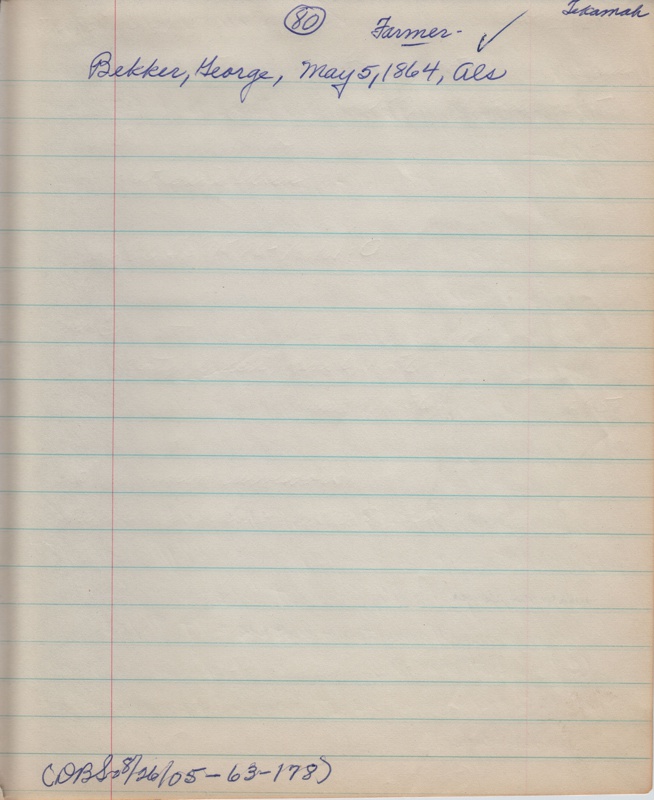 80
Tekamah
Farmer - ✓
Bekker, George, May 5, 1864, Als
(DBS-8/26/05-63-178)